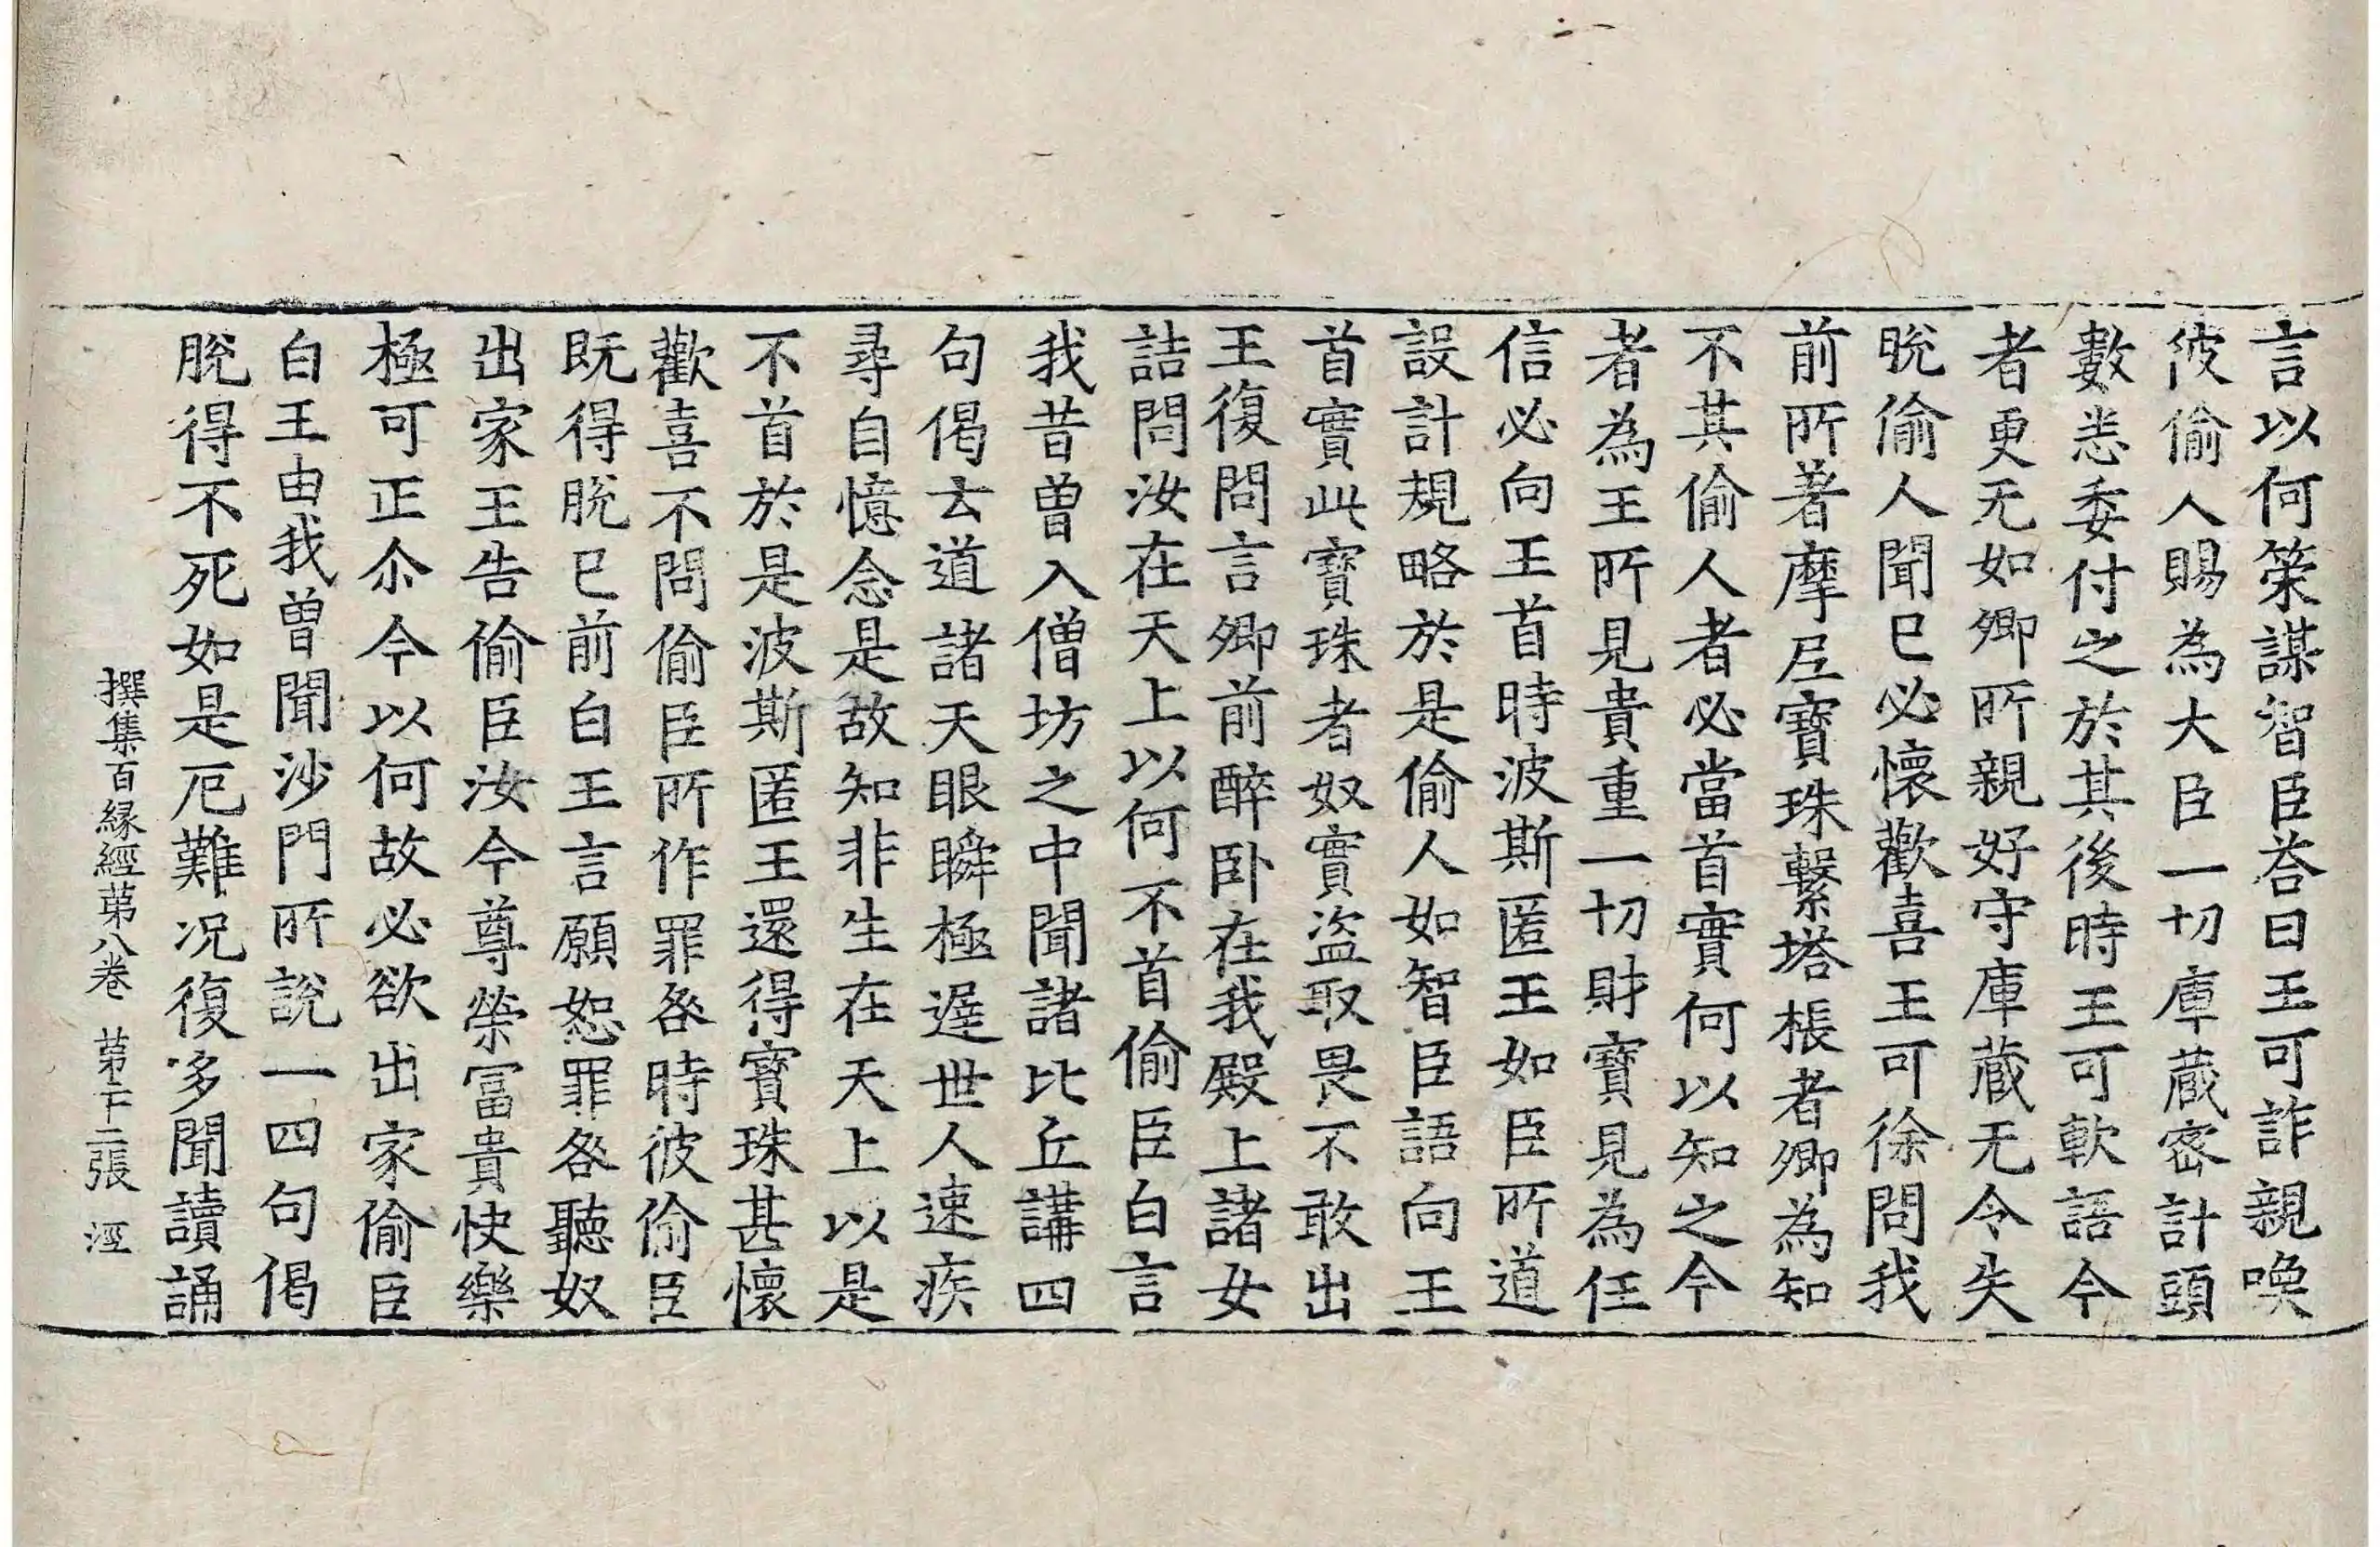 言以何策謀智臣荅曰王可詐親喚
彼偷人賜為大臣一切庫蔵密計頭
數悉委付之於其後時王可軟語今
者更无如卿所親好守庫蔵无令失
脫偷人聞已必懷歡喜王可徐問我
前所著摩尼寶珠繫塔棖者卿為知
不其偷人者必當首實何以知之今
者為王所見貴重一切財寶見為任
信必向王首時波斯匿王如臣所道
設計規略於是偷人如智臣語向王
首實此寶珠者奴實盜取畏不敢出
王復問言卿前醉卧在我殿上諸女
詰問汝在天上以何不首偷臣白言
我昔曾入僧坊之中聞諸比丘講四
句偈云道諸天眼瞬極遲世人速疾
尋自憶念是故知非生在天上以是
不首於是波斯匿王還得寶珠甚懷
歡喜不問偷臣所作罪咎時彼偷臣
既得脫已前白王言願恕罪咎聽奴
出家王告偷臣汝今尊榮冨貴快樂
極可正尒今以何故必欲出家偷臣
白王由我曽聞沙門所說一四句偈
脫得不死如是厄難況復多聞讀誦
撰集百縁經苐八卷 苐二十二張 涇